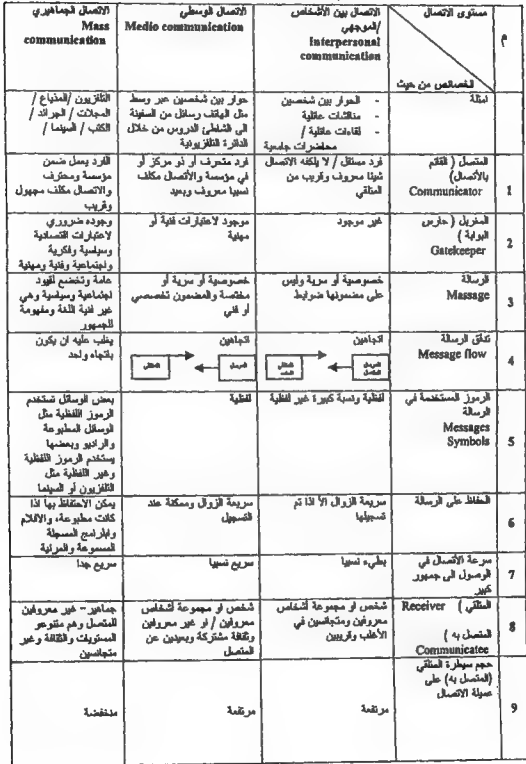 م
مستوى الاتصال
الخصائص من حيث
الاتصال بين الأشخاص
/الموجهي
Interpersonal
communication
الاتصال الوسطي
Medio communication
الاتصال الجماهيري
Mass
communication
أمثلة
- الحوار بين شخصين
- مناقشات عائلية
- لقاءات عائلية /
محاضرات جامعية
حوار بين شخصين عبر وسط
مثل الهاتف رسائل من السفينة
الى الشاطئ الدروس من خلال
الدائرة التلفزيونية
التلفزيون /المذياع /
المجلات / الجرائد /
الكتب / السينما /
1
المتصل ( القائم
بالأتصال)
Communicator
فرد مستقل / لا يكلفه الاتصال
شيئا معروف وقريب من
المتلقي
فرد متحرف أو ذو مركز أو
في مؤسسة والأتصال مكلف
نسبيا معروف وبعيد
الفرد يعمل ضمن
مؤسسة ومحترف
والاتصال مكلف مجهول
وقريب
2
المغربل ( حارس
البوابة )
Gatekeeper
غير موجود
موجود لاعتبارات فنية أو
مهنية
وجوده ضروري
لاعتبارات اقتصادية
وسياسية وفكرية
واجتماعية وفنية ومهنية
3
الرسالة
Massage
خصوصية أو سرية وليس
على مضمونها ضوابط
خصوصية أو سرية أو
مختصة والمضمون تخصصي
أو فني
عامة وتخضع لقيود
اجتماعية وسياسية وهي
غير فنية اللغة ومفهومة
للجمهور
4
تدفق الرسالة
Message flow
اتجاهين
اتجاهين
المرسل
المتلقي
يغلب عليه ان يكون
باتجاه واحد
5
الرموز المستخدمة في
الرسالة
Messages
Symbols
لفظية ونسبة كبيرة غير لفظية
لفظية
بعض الوسائل تستخدم
الرموز اللفظية مثل
الوسائل المطبوعة
والراديو وبعضها
يستخدم الرموز اللفظية
وغير اللفظية مثل
التلفزيون أو السينما
6
الحفاظ على الرسالة
سريعة الزوال الا اذا تم
تسجيلها
سريعة الزوال وممكنة عند
التسجيل
يمكن الاحتفاظ بها اذا
كانت مطبوعة، والافلام
والبرامج المسجلة
المسموعة والمرئية
7
سرعة الأتصال في
الوصول الى جمهور
كبير
بطيء نسبيا
سريع نسبيا
سريع جدا
8
المتلقي ) Receiver
المتصل به )
Communicatee
شخص او مجموعة أشخاص
معروفين ومتجانسين في
الأغلب وقريبين
شخص او مجموعة أشخاص
معروفين / او غير معروفين
وثقافة مشتركة وبعيدين عن
المتصل
جماهير – غير معروفين
للمتصل وهم متنوعو
المستويات والثقافة وغير
متجانسين
9
حجم سيطرة المتلقي
(المتصل به) على
عملية الاتصال
مرتفعة
مرتفعة
منخفضة